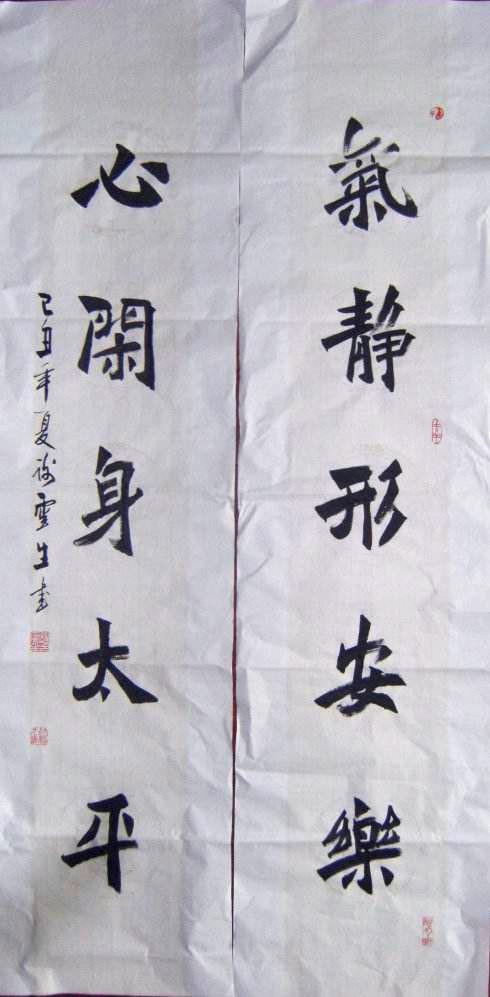 氣靜形安樂
心閑身太平
己丑年夏雲生書